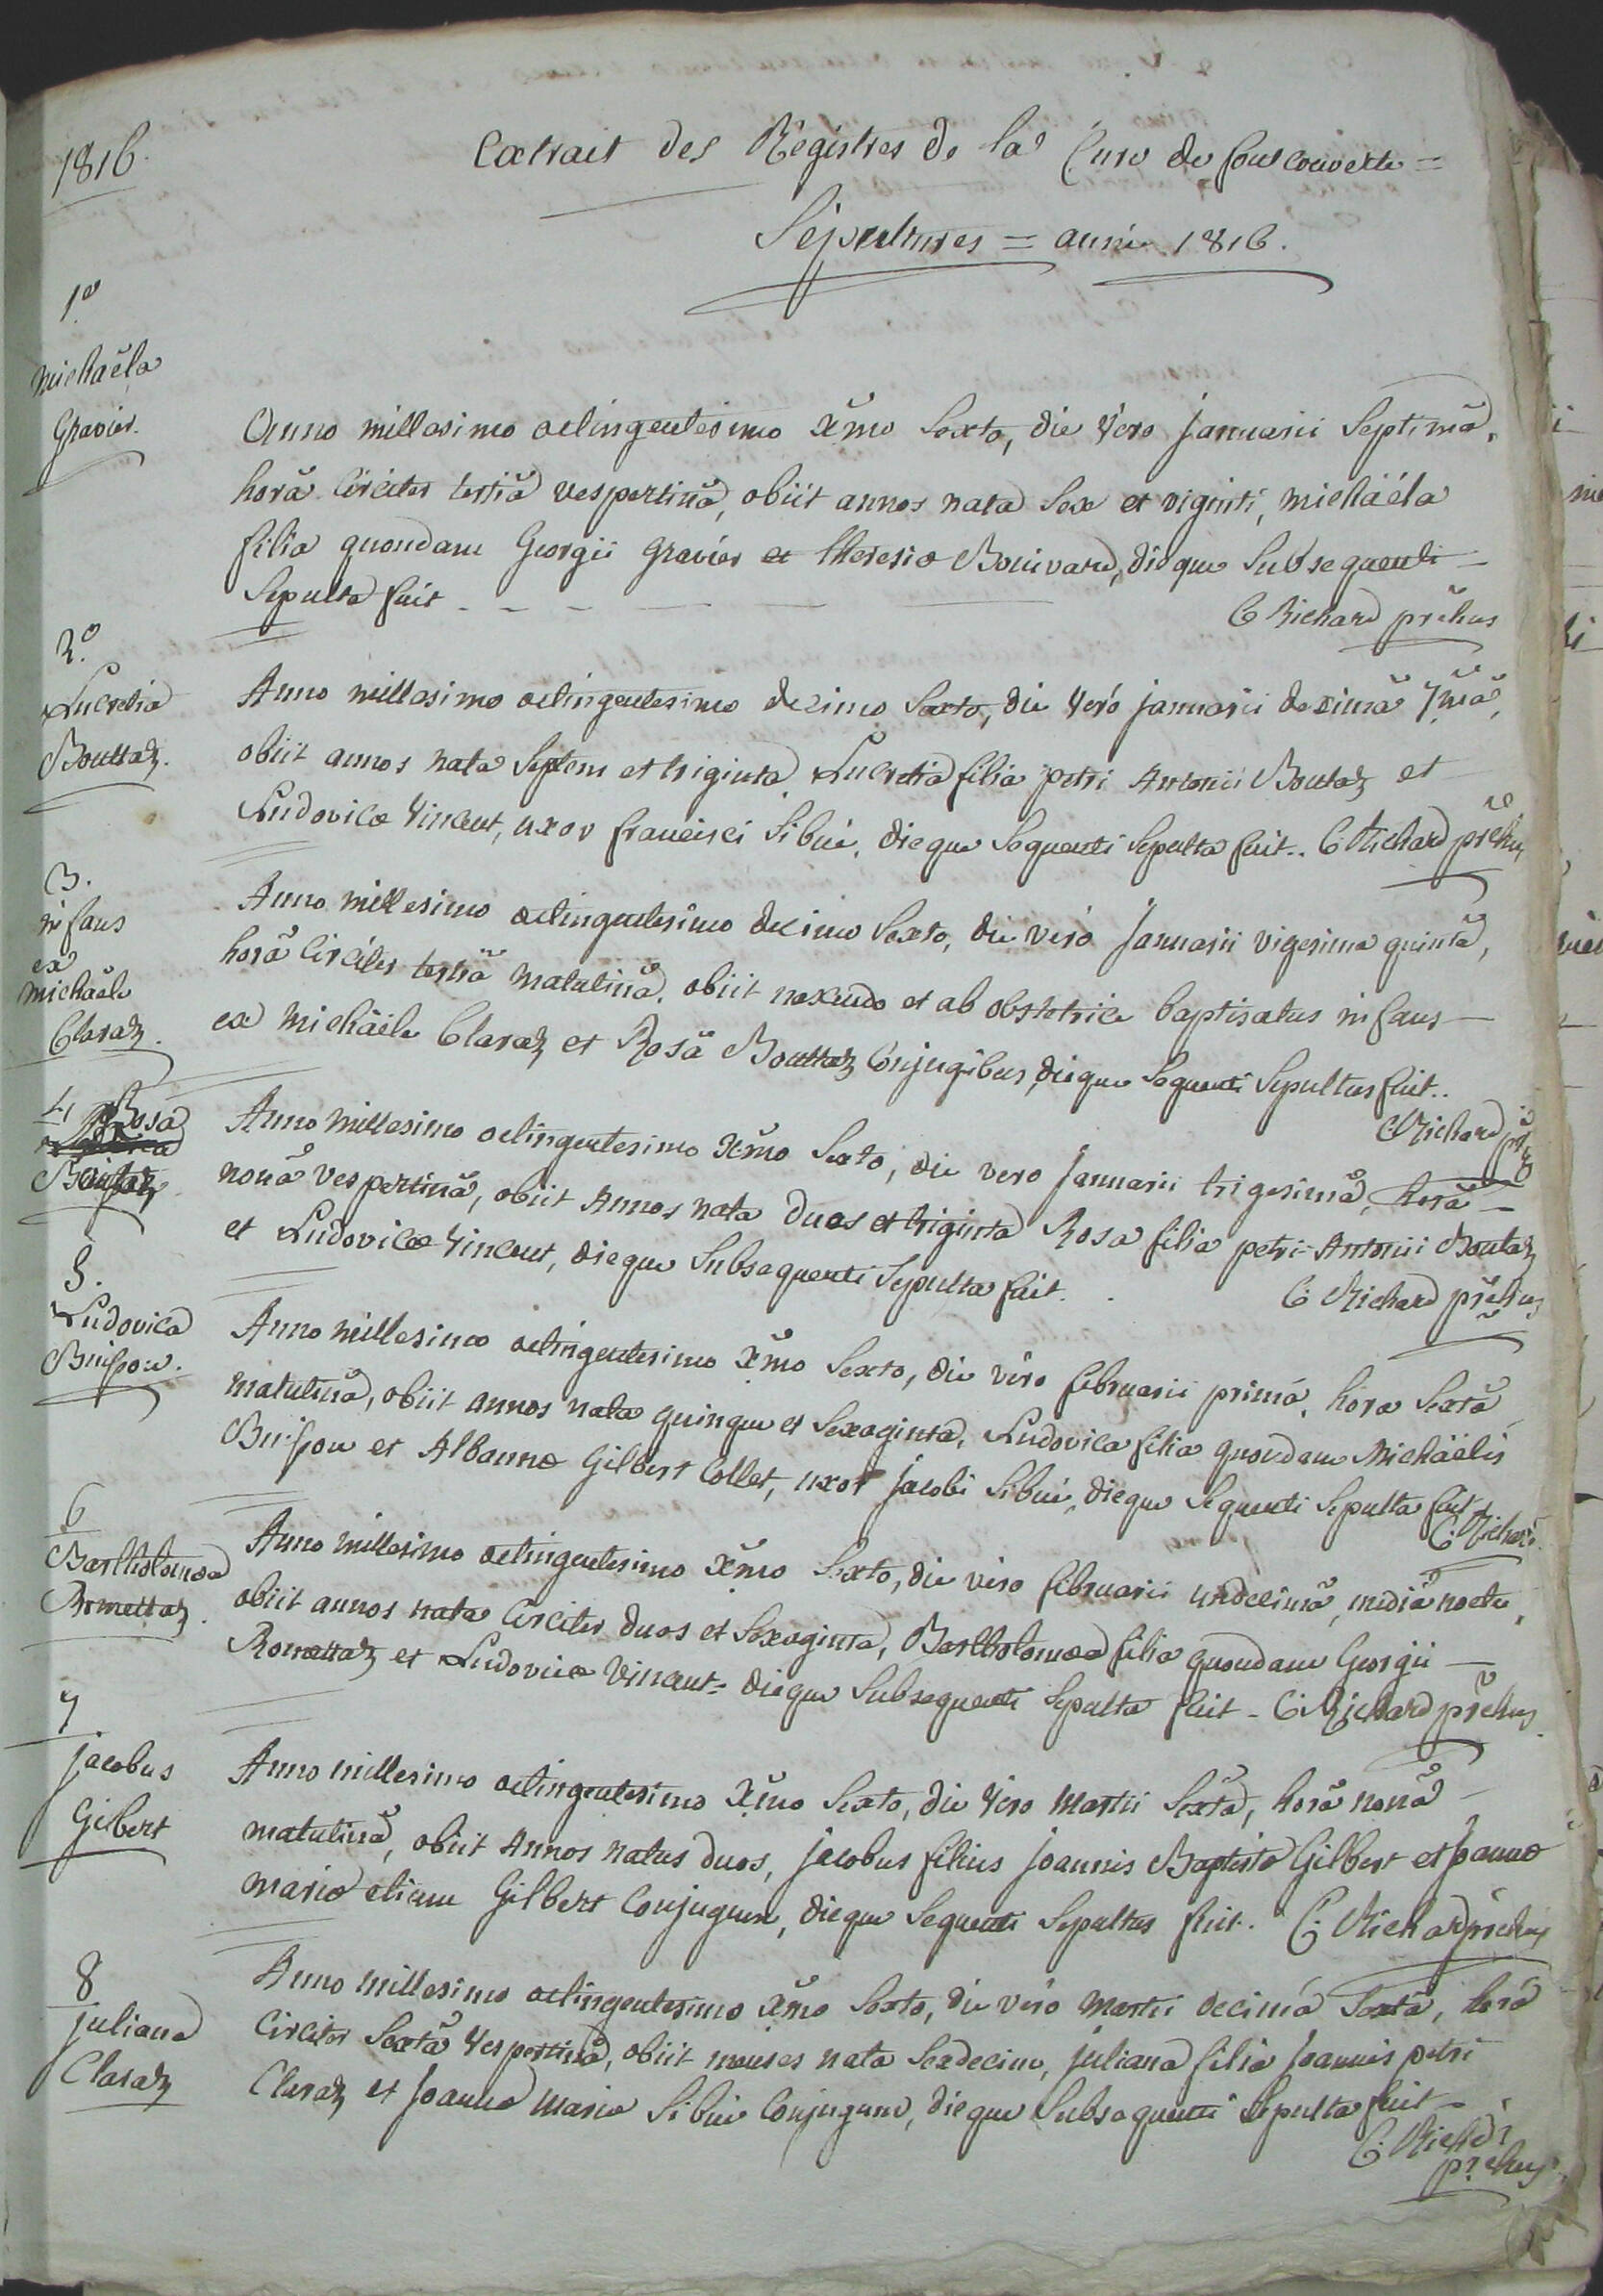 1816.
Extrait des Régistres de la Cure de foncouverte =
Sépultures = année 1816.
1º
michaëla
Gravier.
Anno millesimo octingentesimo Xmo Sexto, die vero januarii Septimâ,
horâ Circiter tertiâ vespertinâ, obiit annos nata Sex et viginti, michaëla
filia quondam Georgii Gravier et theresiæ Bouivard, dieque Subsequenti
Sepulta fuit
C Richard pr̃chus
2º
Lucretia
Bouttaz.
Anno millesimo octingentesimo decimo Sexto, die vero januarii decimâ 7mâ,
obiit annos nata Septem et triginta Lucretia filia petri Antonii Boutaz et
Ludovicæ Vincent, uxor francisci Sibué, dieque Sequenti Sepulta fuit.. C Richard pr̃chus
3.
infans
ex
michaële
Claraz.
Anno millesimo octingentesimo decimo Sexto, die vero Januarii vigesima quintâ,
horâ Circiter tertiâ matutinâ, obiit nascendo et ab obstetrice baptisatus infans
ex Michaële Claraz et Rosâ Bouttaz Conjugibus, dieque Sequenti Sepultus fuit..
C Richard pr̃chus
4 Rosa
Boutaz
Anno millesimo octingentesimo Xmo Sexto, die vero Januarii trigesimâ, horâ
nonâ vespertinâ, obiit Annos nata duos et triginta Rosa filia petri Antonii Boutaz
et Ludovicæ Vincent, dieque Subsequenti Sepulta fuit.
C Richard pr̃chus
5.
Ludovica
Buisson.
Anno millesimo octingentesimo Xmo Sexto, die vero februarii primâ, hora Sextâ
matutinâ, obiit annos nata quinque et Sexaginta, Ludovica filia quondam Michaëlis
Buisson et Albannæ Gilbert Collet, uxor Jacobi Sibué, dieque Sequenti Sepulta fuit
C. Richard
6
Bartholomæa
Romettaz.
Anno millesimo octingentesimo Xmo Sexto, die vero februarii undecimâ, mediâ nocte,
obiit annos nata Circiter duos et Sexaginta, Bartholomæa filia quondam Georgii
Romettaz et Ludovicæ Vincent. dieque Subsequenti Sepulta fuit - C. Richard pr̃chus
7
jacobus
Gilbert
Anno millesimo octingentesimo Xmo Sexto, die vero Martii Sextâ, horâ nonâ
matutinâ, obiit Annos natus duos, jacobus filius joannis Baptistæ Gilbert et joannæ
mariæ etiam Gilbert Conjugum, dieque Sequenti Sepultus fuit. C. Richard pr̃chus
8
juliana
Claraz
Anno millesimo octingentesimo Xmo Sexto, die vero Martii decimâ Sextâ, horâ
Circiter Sextâ Vespertinâ, obiit menses nata Sexdecim, juliana filia Joannis petri
Claraz et Joannæ Mariæ Sibué Conjugum, dieque Subsequenti Sepulta fuit
C. Richard
pr̃chus